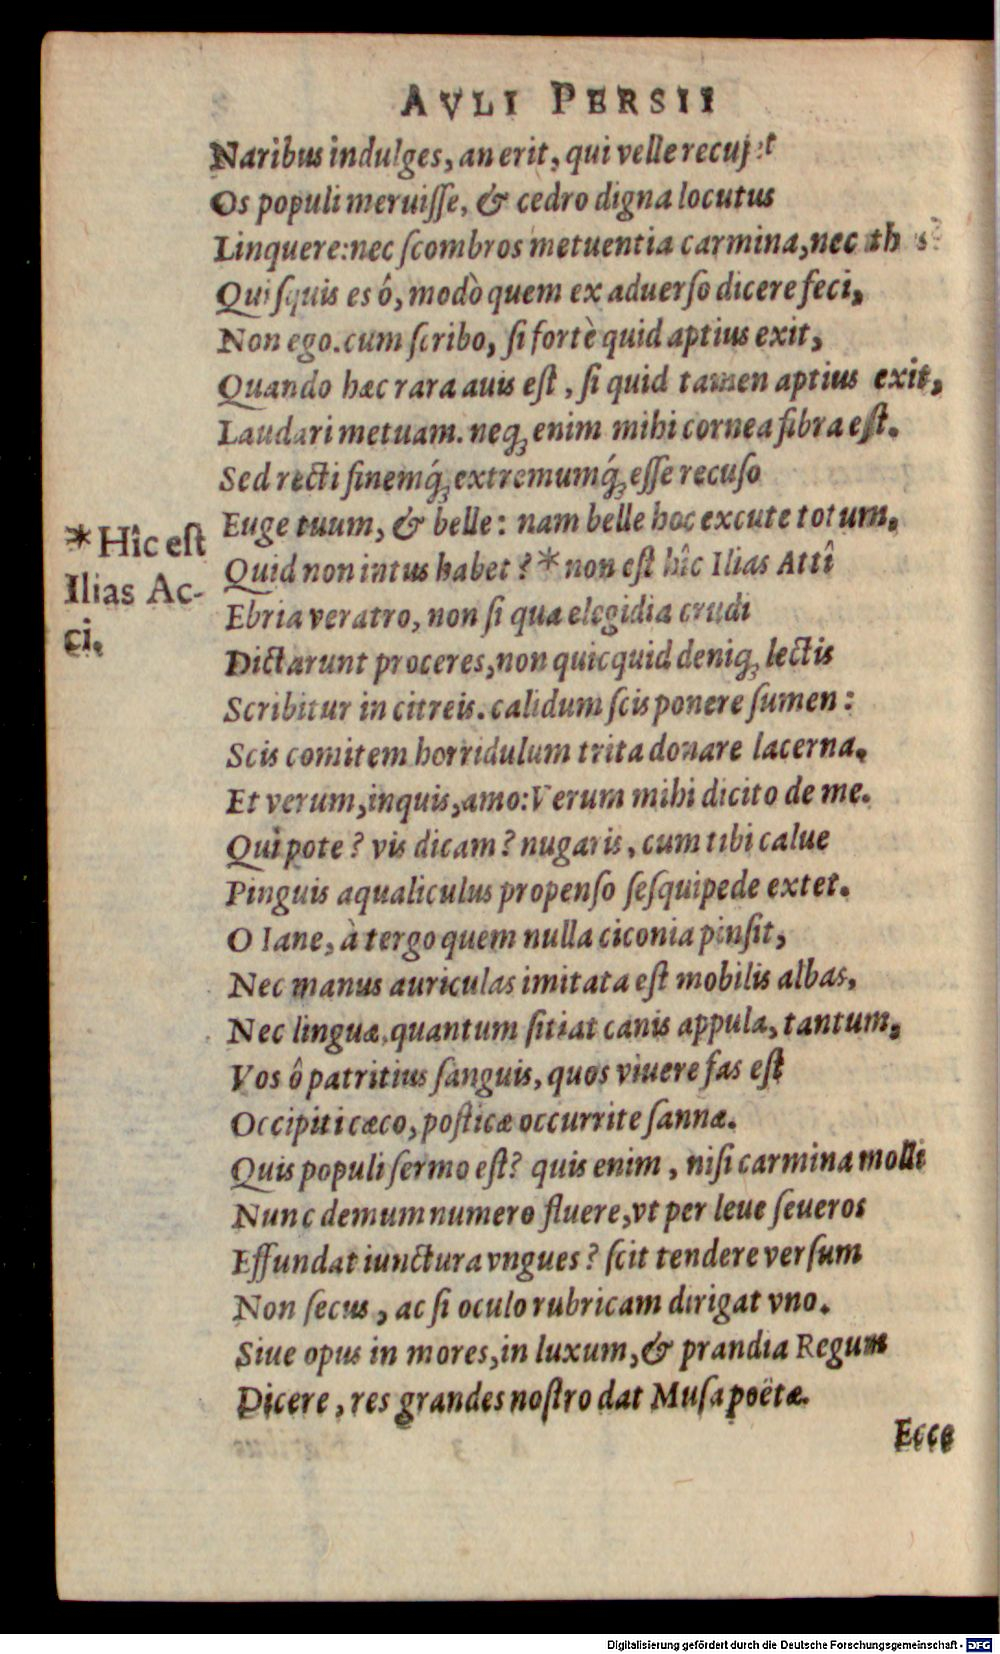 AVLI PERSII
Naribus indulges, an erit, qui velle recuset
Os populi meruiſſe, & cedro digna locutus
Linquere: nec ſcombros metuentia carmina, nec thus?
Quiſquis es ô, modò quem ex aduerſo dicere feci,
Non ego. cum ſcribo, ſi fortè quid aptius exit,
Quando hæc rara auis eſt, ſi quid tamen aptius exit,
Laudari metuam. neq; enim mihi cornea fibra eſt.
Sed recti finemq́; extremumq́; eſſe recuſo
Euge tuum, & belle: nam belle hoc excute totum,
Quid non intus habet? * non eſt hîc Ilias Attî
*Hîc eſt
Ilias Ac-
ci.
Ebria veratro, non ſi qua elegidia crudi
Dictarunt proceres, non quicquid deniq; lectis
Scribitur in citreis. calidum ſcis ponere ſumen:
Scis comitem horridulum trita donare lacerna.
Et verum, inquis, amo: Verum mihi dicito de me.
Qui pote? vis dicam? nugaris, cum tibi calue
Pinguis aqualiculus propenſo ſeſquipede extet.
O Iane, à tergo quem nulla ciconia pinſit,
Nec manus auriculas imitata eſt mobilis albas,
Nec linguæ, quantum ſitiat canis appula, tantum,
Vos ô patritius ſanguis, quos viuere fas eſt
Occipiti cæco, poſticæ occurrite ſannæ.
Quis populi ſermo eſt? quis enim, niſi carmina molli
Nunc demum numero fluere, vt per leue ſeueros
Effundat iunctura vngues? ſcit tendere verſum
Non ſecus, ac ſi oculo rubricam dirigat vno.
Siue opus in mores, in luxum, & prandia Regum
Dicere, res grandes noſtro dat Muſa poëtæ.
Ecce
Digitalisierung gefördert durch die Deutsche Forschungsgemeinschaft - DFG